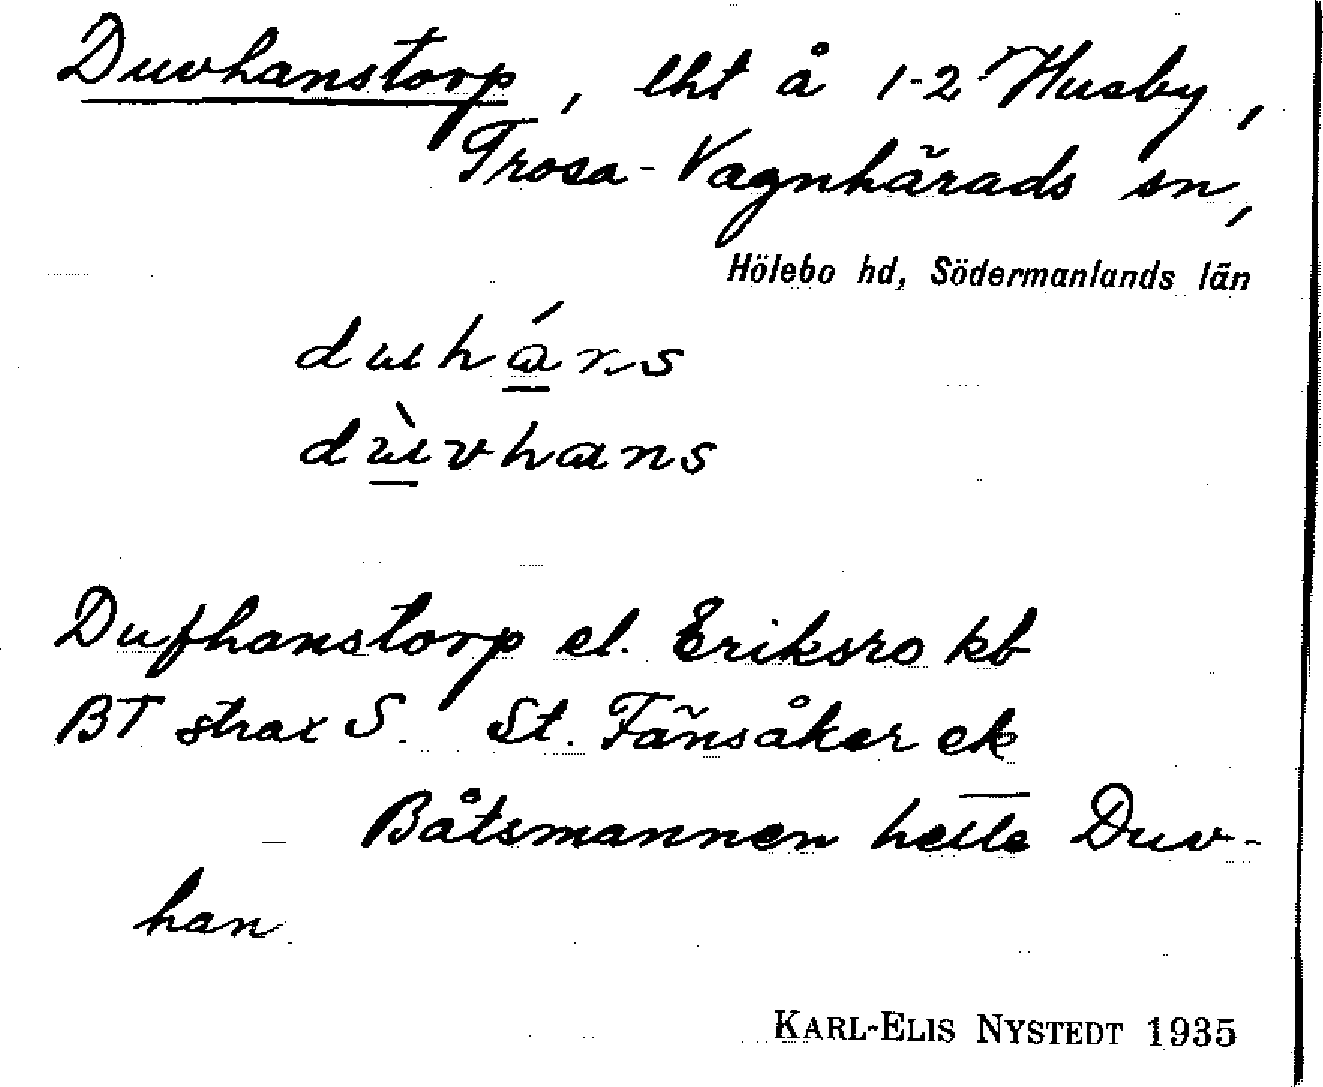 Duvhanstorp, lht å 1-2 Husby,
Trosa-Vagnhärads sn,
Hölebo hd, Södermanlands län
duháns
dùvhans
Dufhanstorp el. Eriksro kb
BT strax S. St. Fänsåker ek
Båtsmannen hette Duv-
han
KARL-ELIS NYSTEDT 1935